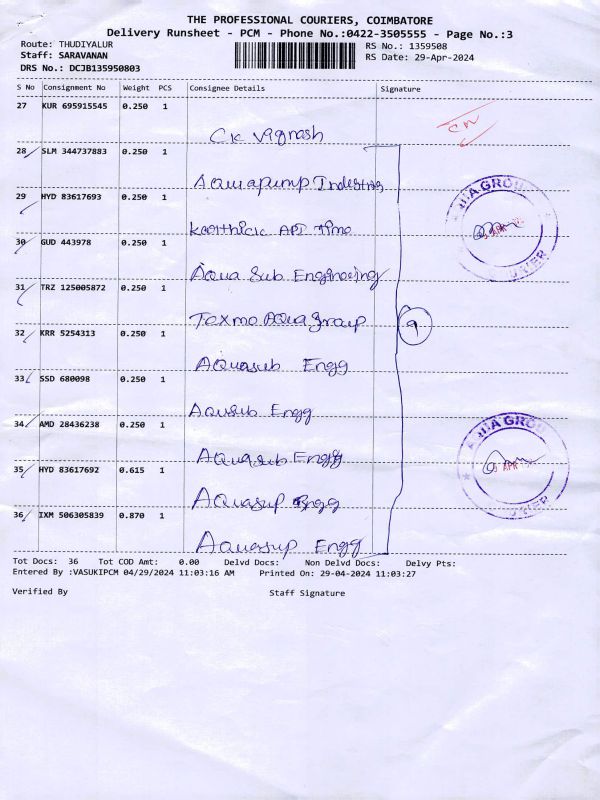 THE PROFESSIONAL COURIERS, COIMBATORE
Delivery Runsheet - PCM - Phone No.:0422-3505555 - Page No.:3
Route: THUDIYALUR
Staff: SARAVANAN
DRS No.: DCJB135950803
RS No.: 1359508
RS Date: 29-Apr-2024
S No Consignment No Weight PCS Consignee Details Signature
27 KUR 695915545 0.250 1
CK Vignash
CN
28 SLM 344737883 0.250 1
Aquapump Industries
29 HYD 83617693 0.250 1
Karthick API Time
30 GUD 443978 0.250 1
Aqua Sub Engineering
31 TRZ 125005872 0.250 1
Texmo Aqua group
32 KRR 5254313 0.250 1
9
Aquasub Engg
33 SSD 680098 0.250 1
Aqusub Engg
34 AMD 28436238 0.250 1
Aquasub Engg
35 HYD 83617692 0.615 1
Aquasup Engg
36 IXM 506305839 0.870 1
Aquasup Engg
AQUA GROUP
APR
AQUA GROUP
APR
Tot Docs: 36 Tot COD Amt: 0.00 Delvd Docs: Non Delvd Docs: Delvy Pts:
Entered By :VASUKIPCM 04/29/2024 11:03:16 AM Printed On: 29-04-2024 11:03:27
Verified By Staff Signature